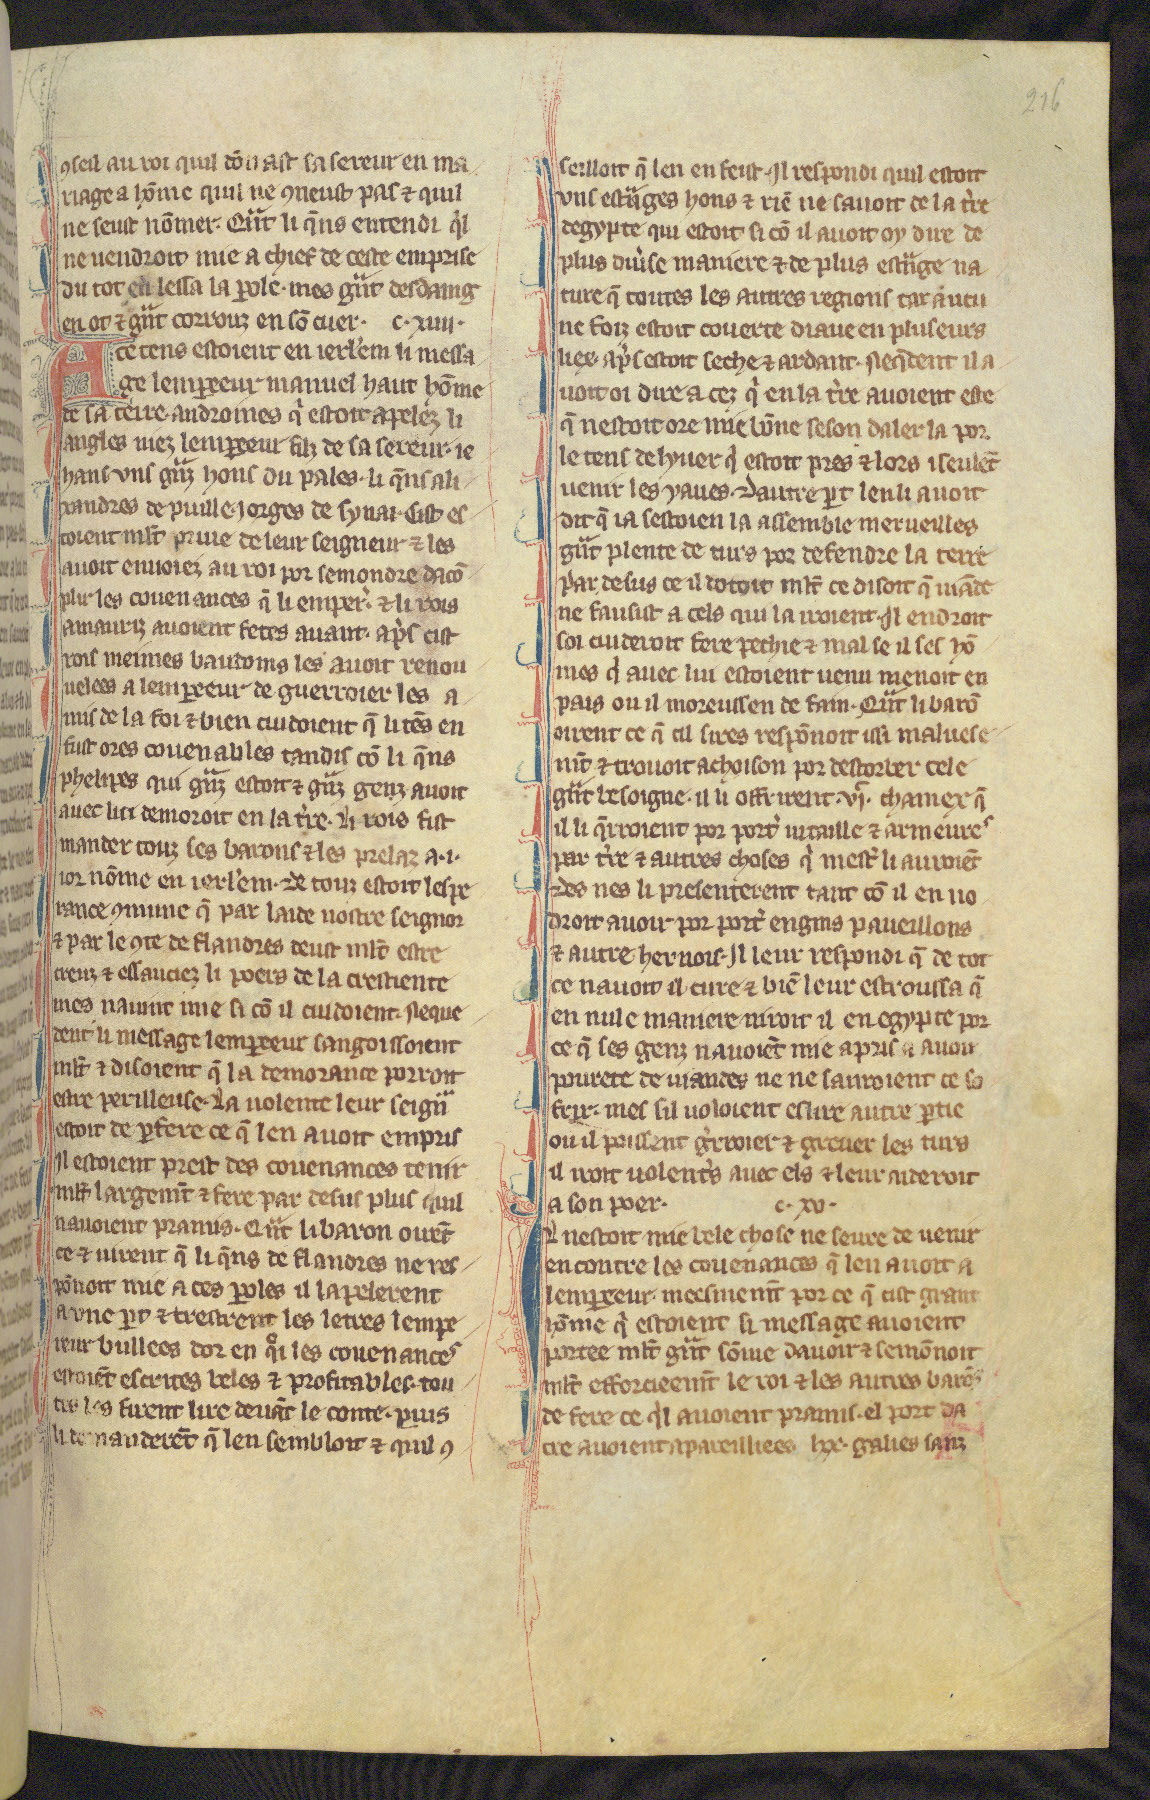 216
ꝯseil au roi quil dōnast sa sereur en ma
riage a hōme quil ne ꝯneust pas ⁊ quil
ne seust nōmer. Qūt li q̄ns entendi q̓l
ne uendroit mie a chief de ceste emprise
du tot en lessa la ꝑole. mes gūt desdaing
en ot ⁊ gūt corrouz en sō cuer. c. xiiii.
A ce tens estoient en ierl'em li messa
ge lempeeur manuel haut hōme
de sa terre. andromes q̓ estoit apelez li
angles niez lempeeur filz de sa sereur. ie
hans uns gūz hons du pales. li q̄ns ali
xandres de puille. iorges de synai. Cist es
toient ml̄t priue de leur seigneur ⁊ les
auoit enuoiez au roi por semondre dacō
plir les couenances q̄ li emper̓. ⁊ li rois
amauriz auoient fetes auant. ap̓s cist
rois meimes baudoins les auoit renou
uelees a lempeeur de guerroier les a
nuis de la foi ⁊ bien cuidoient q̄ li tēs en
fust ores couenables tandis cō li q̄ns
phelipes qui gūz estoit ⁊ gūz genz auoit
auec lui demoroit en la t̓re. Li rois fist
mander touz ses barons ⁊ les prelaz a .i.
ior nōme en ierl'em. De touz estoit lespe
rance ꝯmune q̄ par laide nostre seignor
⁊ par le ꝯte de flandres deust ml̄t estre
creuz ⁊ essauciez li poers de la crestiente
mes nauint mie si cō il cuidoient. Neque
dent li message lempeeur sangoissoient
ml̄t ⁊ disoient q̄ la demorance porroit
estre perilleuse. La uolente leur seigū
estoit de ꝑfere ce q̄ len auoit empris
Il estoient prest des couenances tenir
ml̄t largem̄t ⁊ fere par desus plus quil
nauoient pramis. Qūt li baron oirēt
ce ⁊ uirent q̄ li q̄ns de flandres ne res
pōnoit mie a ces ꝑoles il lapelerent
a une ꝑt ⁊ trestrent les letres lempe
reur bullees dor en q̊i les couenances
estoiēt escrites beles ⁊ profitables. tou
tes les firent lire deuāt le conte. puis
li demanderēt q̄ len sembloit ⁊ quil ꝯ
seilloit q̄ len en feist. Il respondi quil estoit
uns estūges hons ⁊ riē ne sauoit de la t̓re
degypte qui estoit si cō il auoit oy dire de
plus diu̓se maniere ⁊ de plus estūge na
ture q̄ toutes les autres regions car aucu
ne foiz estoit couerte diaue en pluseurs
liex. ap̓s estoit seche ⁊ ardant. Neq̄dent il a
uoit oi dire a cez q̓ en la t̓re auoient este
q̄ nestoit ore mie bōne seson daler la por
le tens de hyuer q̓ estoit pres ⁊ lors iseulēt
uenir les yaues. Dautre ꝑt len li auoit
dit q̄ ia sestoien la assemble merueilles
gūt plente de turs por defendre la terre
Par desus ce il dotoit ml̄t ce disoit q̄ uiāde
ne fausist a cels qui la iroient. Il endroit
soi cuideroit fere pechie ⁊ mal se il ses hō
mes q̓ auec lui estoient uenu menoit en
pais ou il moreussen de fain. Qūt li barō
oirent ce q̄ cil sires respōnoit issi maluese
m̄t ⁊ trouoit achoison por destorber cele
gūt besoigne. il li offrirent .vi. chamex q̄
il li q̄rroient por port̓ uitaille ⁊ armeures
par t̓re ⁊ autres choses q̓ mest̓ li auroiēt
Des nes li presenterent tant cō il en uo
droit auoir por port̓ engins paueillons
⁊ autre hernois. Il leur respondi q̄ de tot
ce nauoit il cure ⁊ biē leur estroussa q̄
en nule maniere niroit il en egypte por
ce q̄ ses genz nauoiēt mie apris a auoir
pourete de uiandes ne ne sauroient ce so
frir. mes sil uoloient eslire autre ꝑtie
ou il poissent g̓rroier ⁊ greuer les turs
il iroit uolent̓s auec els ⁊ leur aideroit
a son poer. c. xv.
Il nestoit mie bele chose ne seure de uenir
encontre les couenances q̄ len auoit a
lempeeur. meesmem̄t por ce q̄ cist grant
hōme q̓ estoient si message auoient
portee ml̄t gūt sōme dauoir ⁊ semōnoit
ml̄t efforcieem̄t le roi ⁊ les autres barōs
de fere ce q̓l auoient pramis. el port da
cre auoient apareilliees lxx. galies sanz